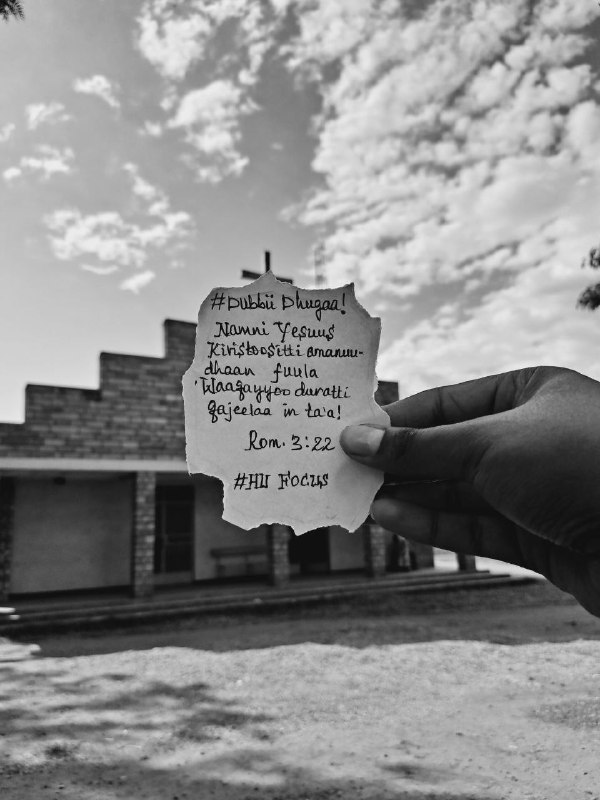 #Dubbii Dhugaa!
Namni Yesuus
Kiristoositti amanuu-
dhaan fuula
Waaqayyoo duratti
qajeelaa in ta'a!
Rom. 3:22
#HU Focus